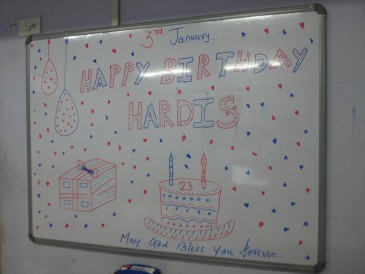 3rd January...
HAPPY BIRTHDAY
HARDIS
23
May God Bless You forever...